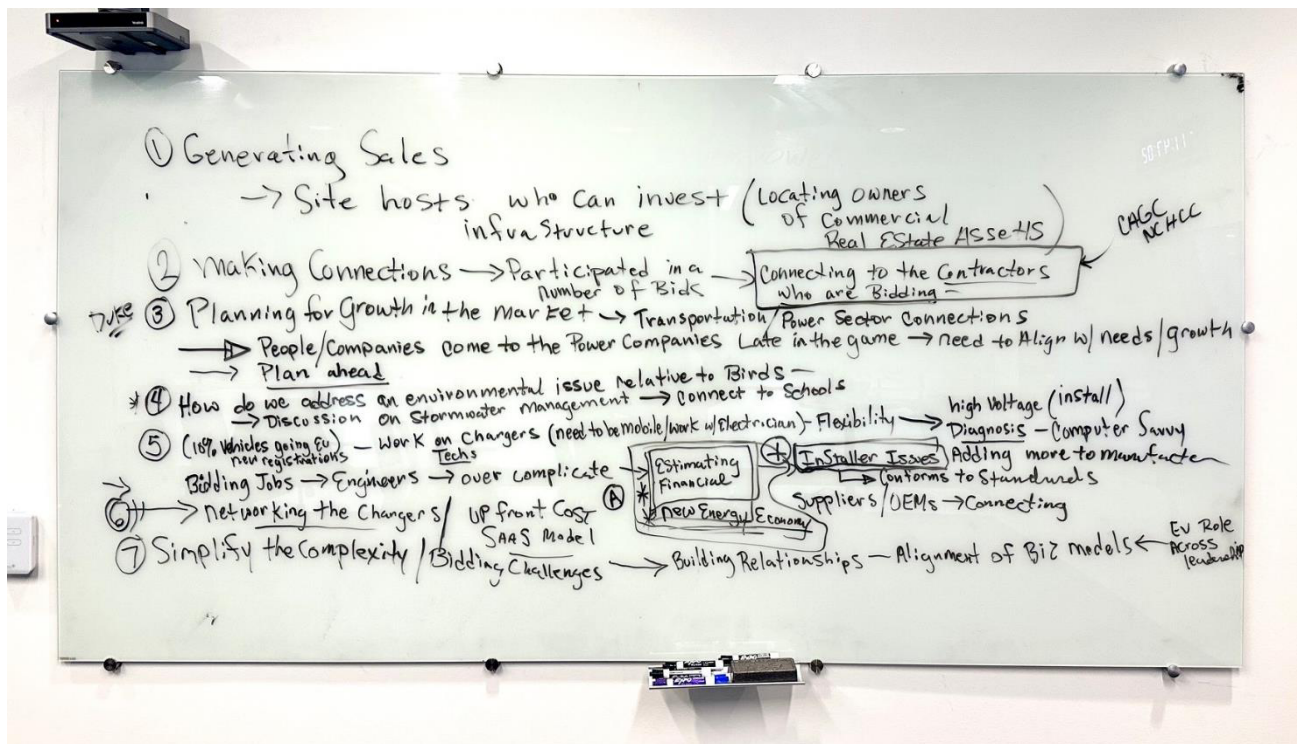 ① Generating Sales
→ Site hosts who can invest (Locating owners
infrastructure of Commercial
Real Estate Assets)
CAGC
NCHCC
② Making Connections → Participated in a → Connecting to the Contractors
number of Bids who are Bidding –
Duke ③ Planning for Growth in the market → Transportation / Power Sector Connections
→ People/Companies come to the Power Companies Late in the game → need to Align w/ needs/growth
→ Plan ahead
* ④ How do we address an environmental issue relative to Birds –
→ Discussion on Stormwater management → Connect to Schools
⑤ (18% Vehicles going EV) – Work on Chargers (need to be mobile/work w/Electrician) – Flexibility → high Voltage (install)
new registrations Techs Diagnosis – Computer Savvy
→ Bidding Jobs → Engineers → over complicate → Estimating + Installer Issues Adding more to manufacturer
Financial → Conforms to Standards
Ⓐ * * new Energy Economy Suppliers/OEMs → Connecting
⑥ → networking the Chargers / UP front Cost
SAAS Model
⑦ Simplify the Complexity / Bidding Challenges → Building Relationships – Alignment of Biz models ← EV Role
Across
leadership